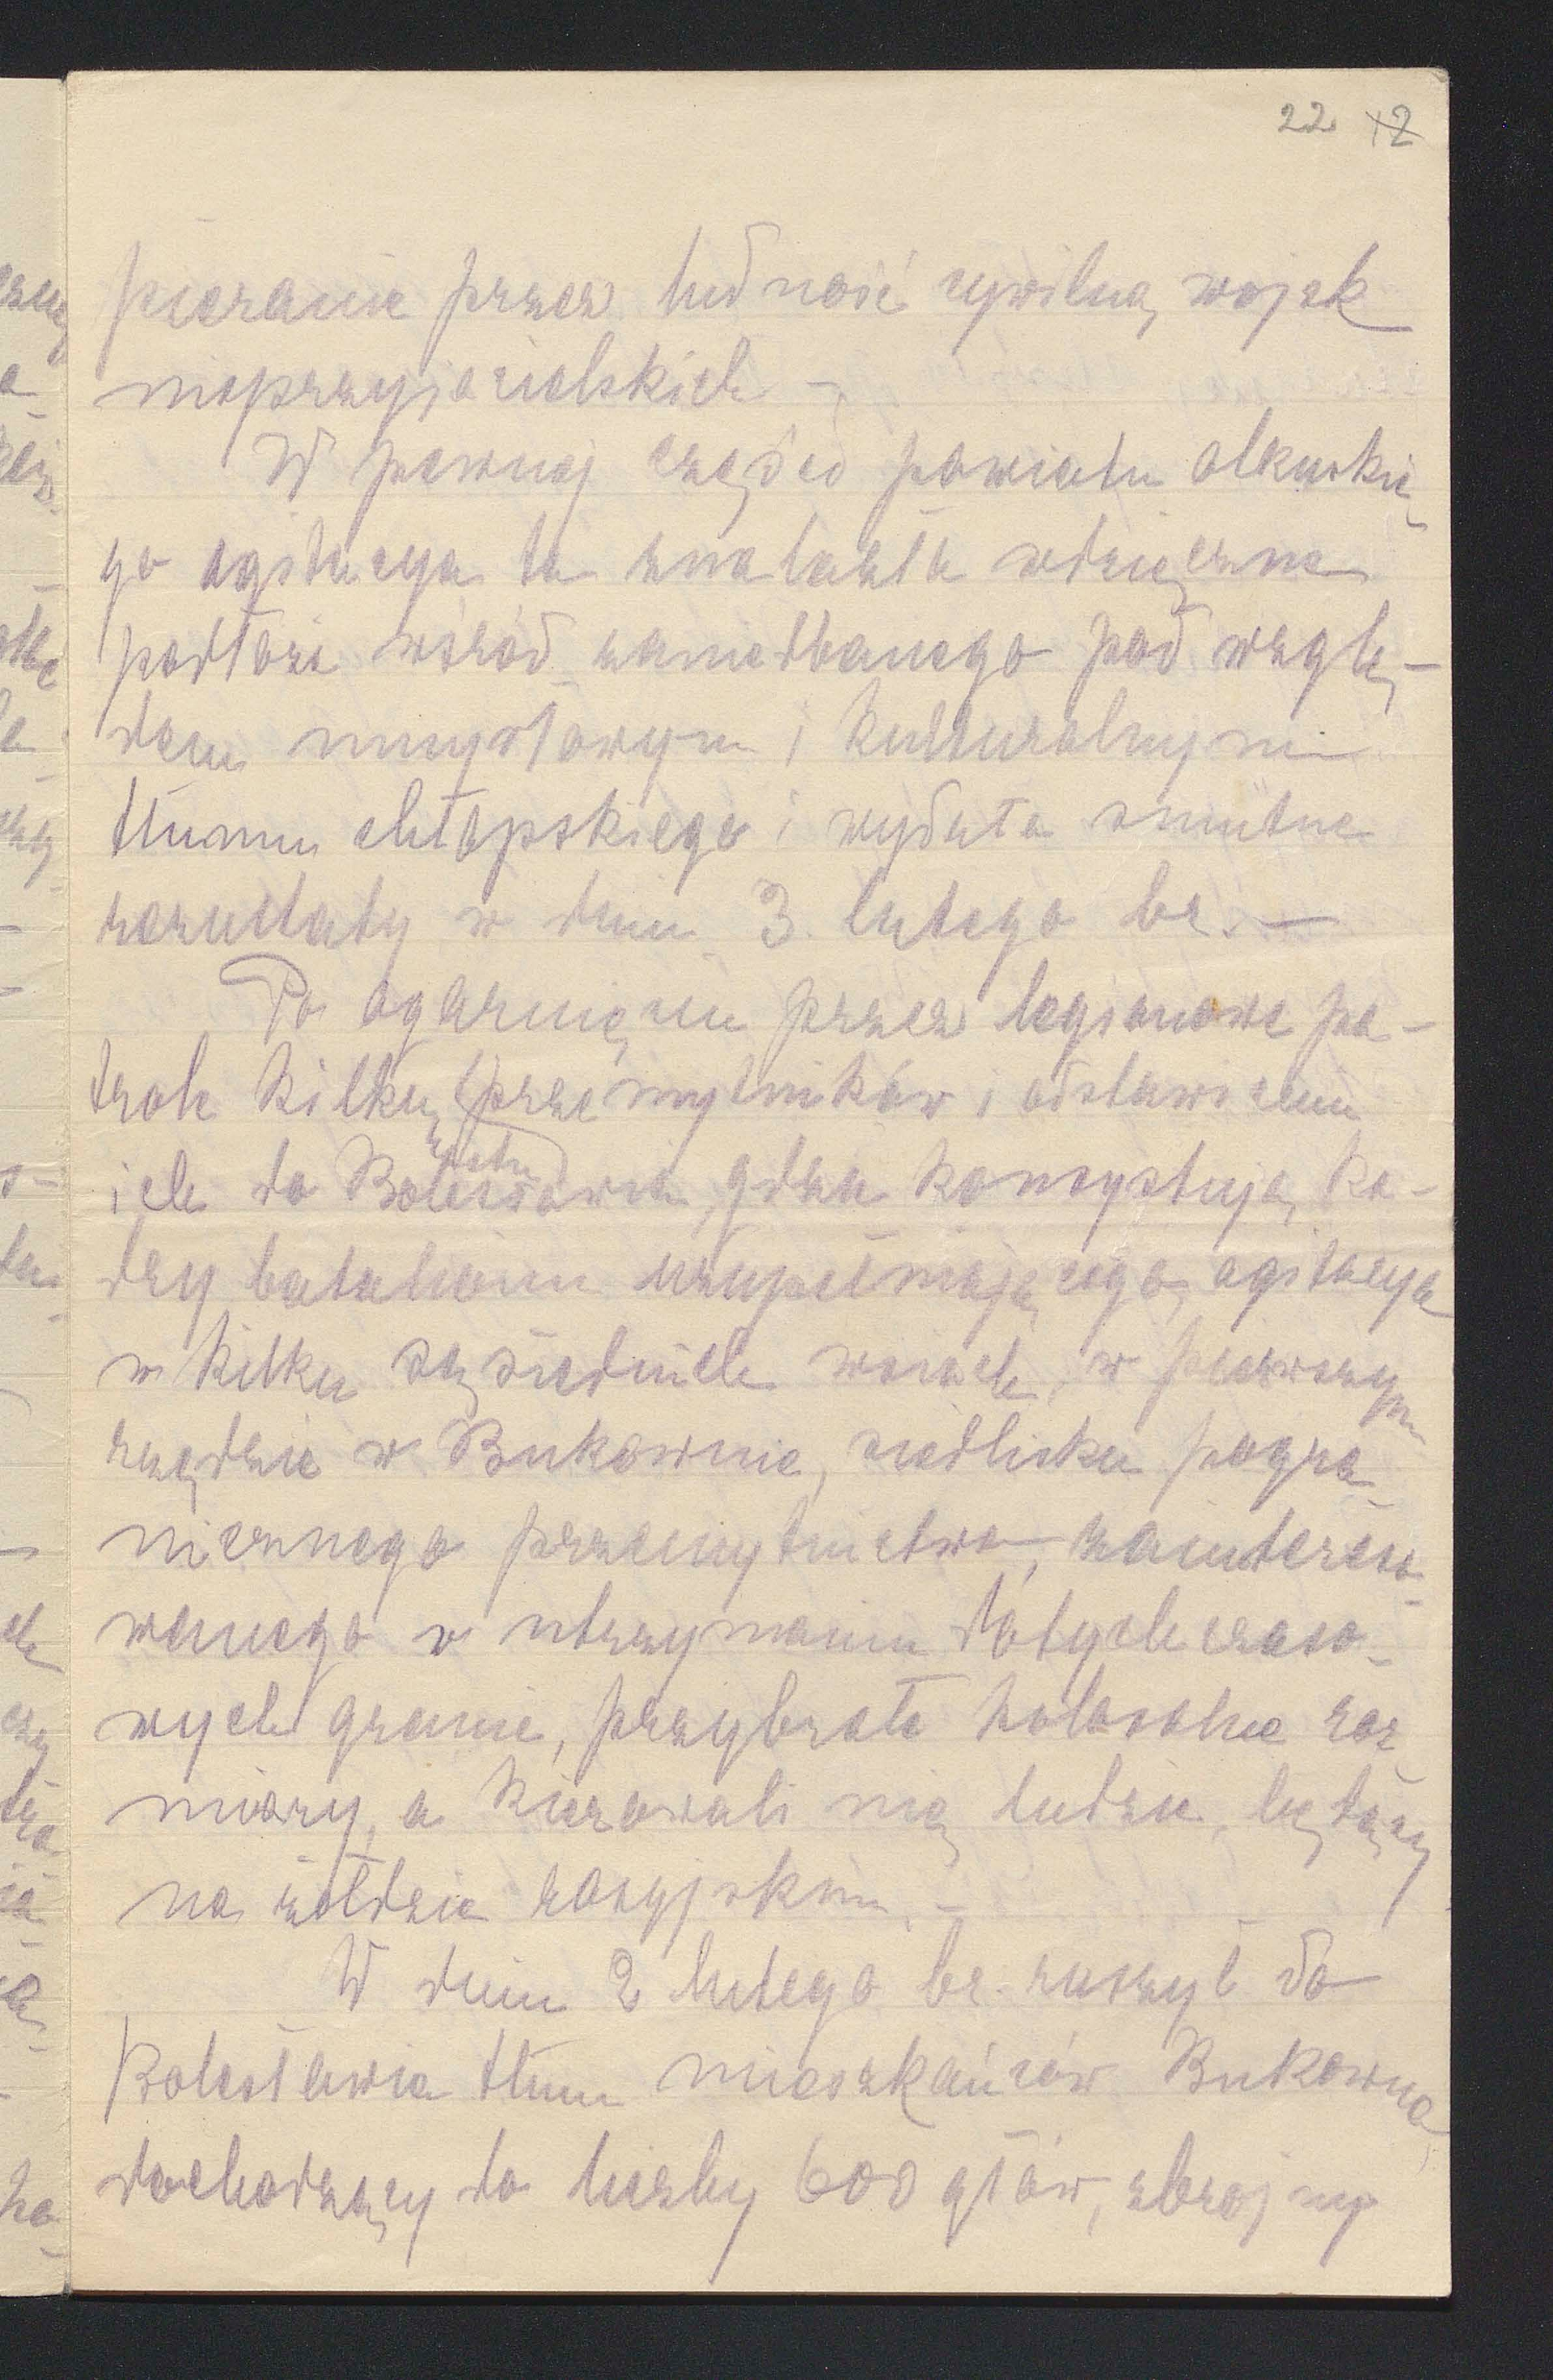 22 12
pieranie przez ludność cywilną wojsk
nieprzyjacielskich –
W pewnej części powiatu olkuskie
go agitacya ta znalazła wdzięczne
podłoże wśród zaniedbanego pod wzglę-
dem umysłowym i kulturalnym
tłumu chłopskiego i wydała smutne
rezultaty w dniu 3 lutego br. –
Po ogarnięciu przez legionowe pa-
trole kilku przemytników i odstawieniu
ich do Bolesławia, gdzie konsystują ka-
dry batalionu uzupełniającego, agitacya
w kilku sąsiednich wsiach, w pierwszym
rzędzie w Bukownie, siedlisku pogra-
nicznego przemytnictwa, zaintereso-
wanego w utrzymaniu dotychczaso-
wych granic, przybrała kolosalne roz-
miary, a kierowali nią ludzie, będący
na żołdzie rosyjskim. –
W dniu 2 lutego br. ruszył do
Bolesławia tłum mieszkańców Bukowna,
dochodzący do liczby 600 głów, zbrojny